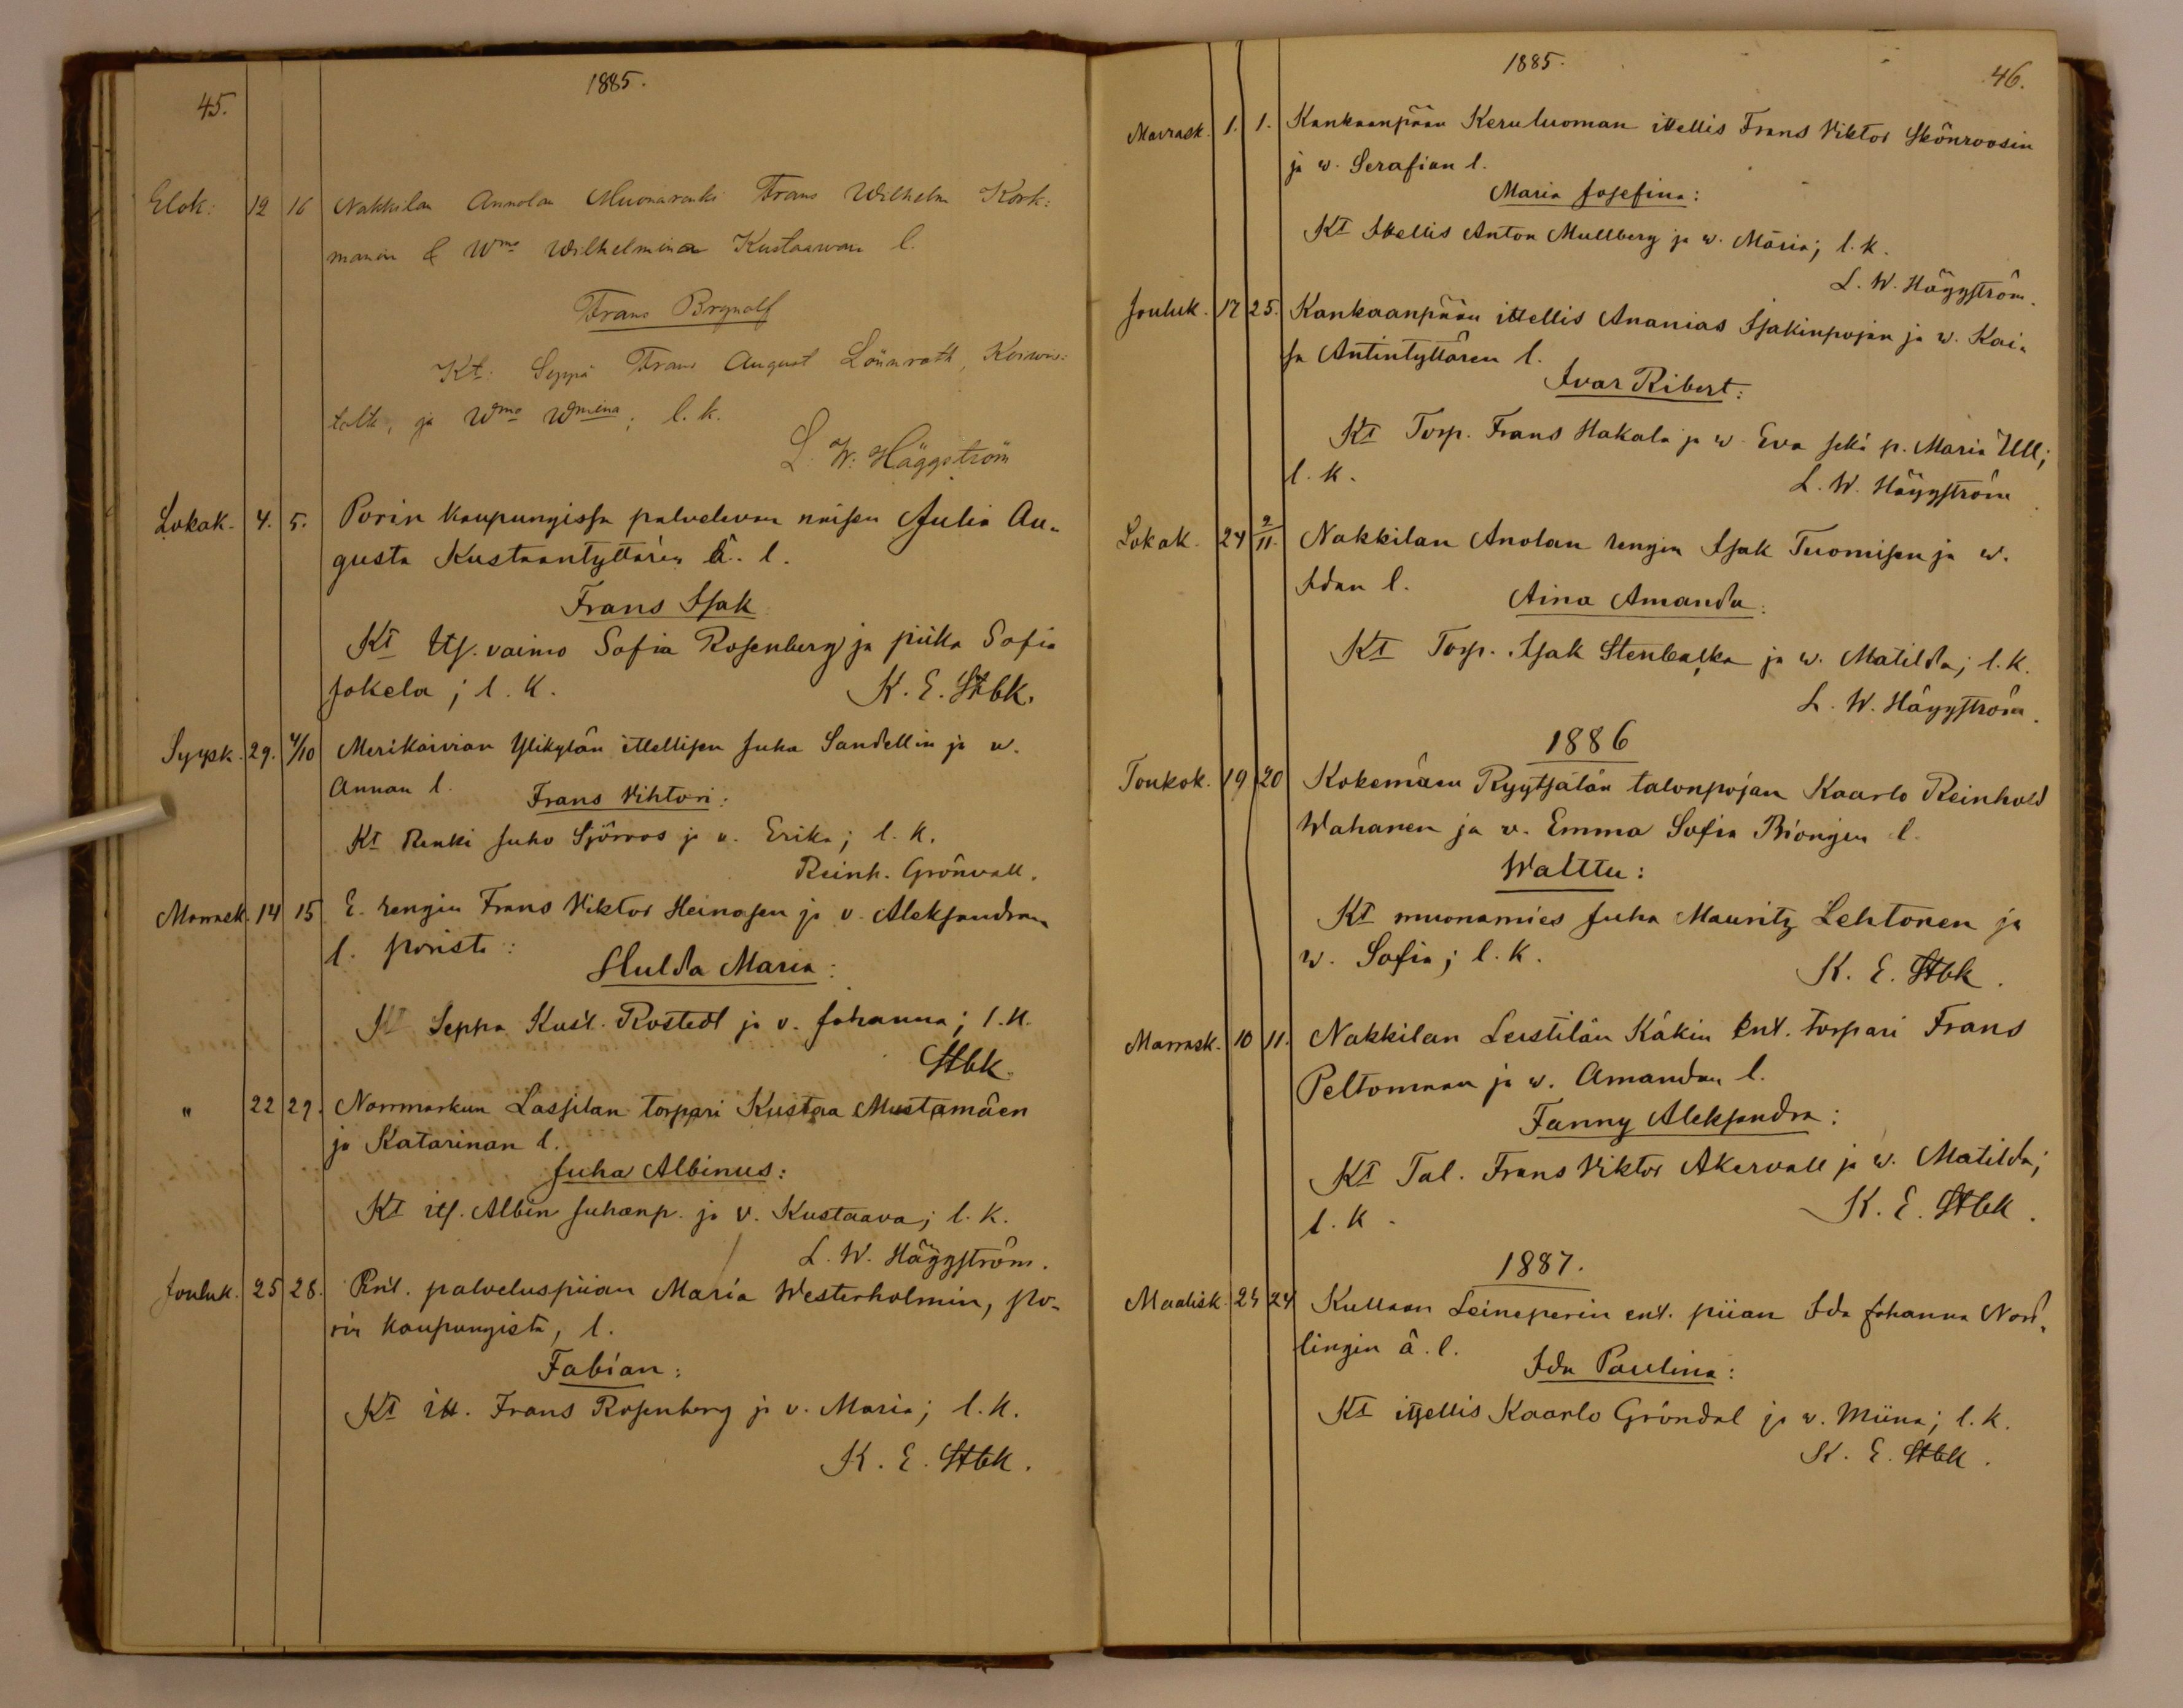 45.
1885.
Elok: 12 16 Nakkilan Annolan Muonarenki Frans Wilhelm Kork:
manin & Wmo Wilhelmina Kustaawan l.
Frans Brynolf
Kt: Seppä Frans August Lönnroth,
talk, ja Wmo Wmina; l. k.
L. W. Häggström
Lokak. 4. 5. Porin kaupungissa palvelevan naisen Julia Au-
gusta Kustaantyttären ä. l.
Frans Isak
Kt Its. vaimo Sofia Rosenberg ja piika Sofia
Jokela; l. k. K. E. Stbk.
Syysk. 29. 4/10 Merikarvian Ylikylän ittellisen Juha Sandellin ja w.
Annan l. Frans Vihtori:
Kt Renki Juho Sjöroos ja v. Erika; l. k.
Reinh. Grönvall.
Marrask. 14 15 E. rengin Frans Viktor Heinosen ja v. Aleksandran
l. Porista:
Hulda Maria:
Kt Seppa Kust. Rostedt ja v. Johanna; l. k.
Stbk.
" 22 29. Norrmarkun Lassilan torppari Kustaa Mustamäen
ja Katarinan l.
Juha Albinus:
Kt its. Albin Juhanp. ja v. Kustaava; l. k.
L. W. Häggström.
Jouluk. 25 28. Ent. palveluspiian Maria Westerholmin, Po-
rin kaupungista, l.
Fabian:
Kt itt. Frans Rosenberg ja v. Maria; l. k.
K. E. Stbk.
1885.
46.
Marrask. 1. 1. Kankaanpään Keruluoman ittellis Frans Viktor Skönroosin
ja w. Serafian l.
Maria Josefina:
Kt Itellis Anton Mullberg ja w. Maria; l. k.
L. W. Häggström.
Jouluk. 17 25. Kankaanpään ittellis Ananias Isakinpojan ja w. Kai-
sa Antintyttären l.
Ivar Ribert:
Kt Torp. Frans Hakala ja w Eva sekä p. Maria Ull;
l. k. L. W. Häggström
Lokak. 24 2/11. Nakkilan Anolan rengin Isak Tuomisen ja w.
Idan l. Aina Amanda:
Kt Torp. Isak Stenbacka ja w. Matilda; l. k.
L. W. Häggström.
1886
Toukok. 19. 20 Kokemäen Ryytsälän talonpojan Kaarlo Reinhold
Wahanen ja v. Emma Sofia l.
Walttu:
Kt muonamies Juha Mauritz Lehtonen ja
w. Sofia; l. k. K. E. Stbk.
Marrask. 10 11. Nakkilan Leistilän Käkin ent. torpari Frans
Peltomaan ja w. Amandan l.
Fanny Aleksandra:
Kt Tal. Frans Viktor Akervall ja w. Matilda;
l. k. K. E. Stbk.
1887.
Maalisk. 24 24 Kullaan Leineperin ent. piian Ida Johanna Nord-
lingin ä. l. Ida Paulina:
Kt itsellis Kaarlo Gröndal ja w. Miina; l. k.
K. E. Stbk.